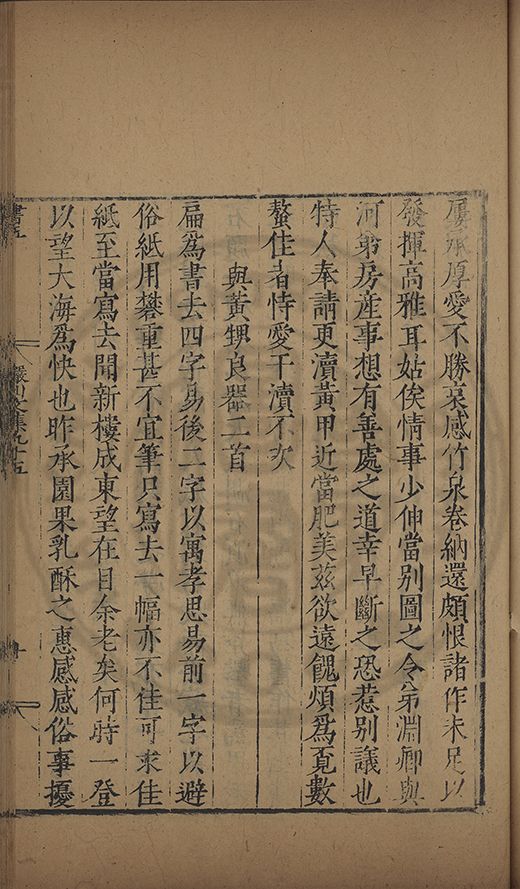 屢承厚愛不勝哀感竹泉卷納還頗恨諸作未足以
發揮高雅耳姑俟情事少伸當別圖之令弟淵卿與
河弟房産事想有善處之道幸早斷之恐惹別議也
特人奉請更瀆黃甲近當肥美茲欲遠餽煩爲覓數
螯佳者恃愛干瀆不次
與黃甥良器二首
扁爲書去四字易後二字以寓孝思易前一字以避
俗紙用礬重甚不宜筆只寫去一幅亦不佳可求佳
紙至當寫去聞新樓成東望在目余老矣何時一登
以望大海爲快也昨承園果乳酥之惠感感俗事擾
書五